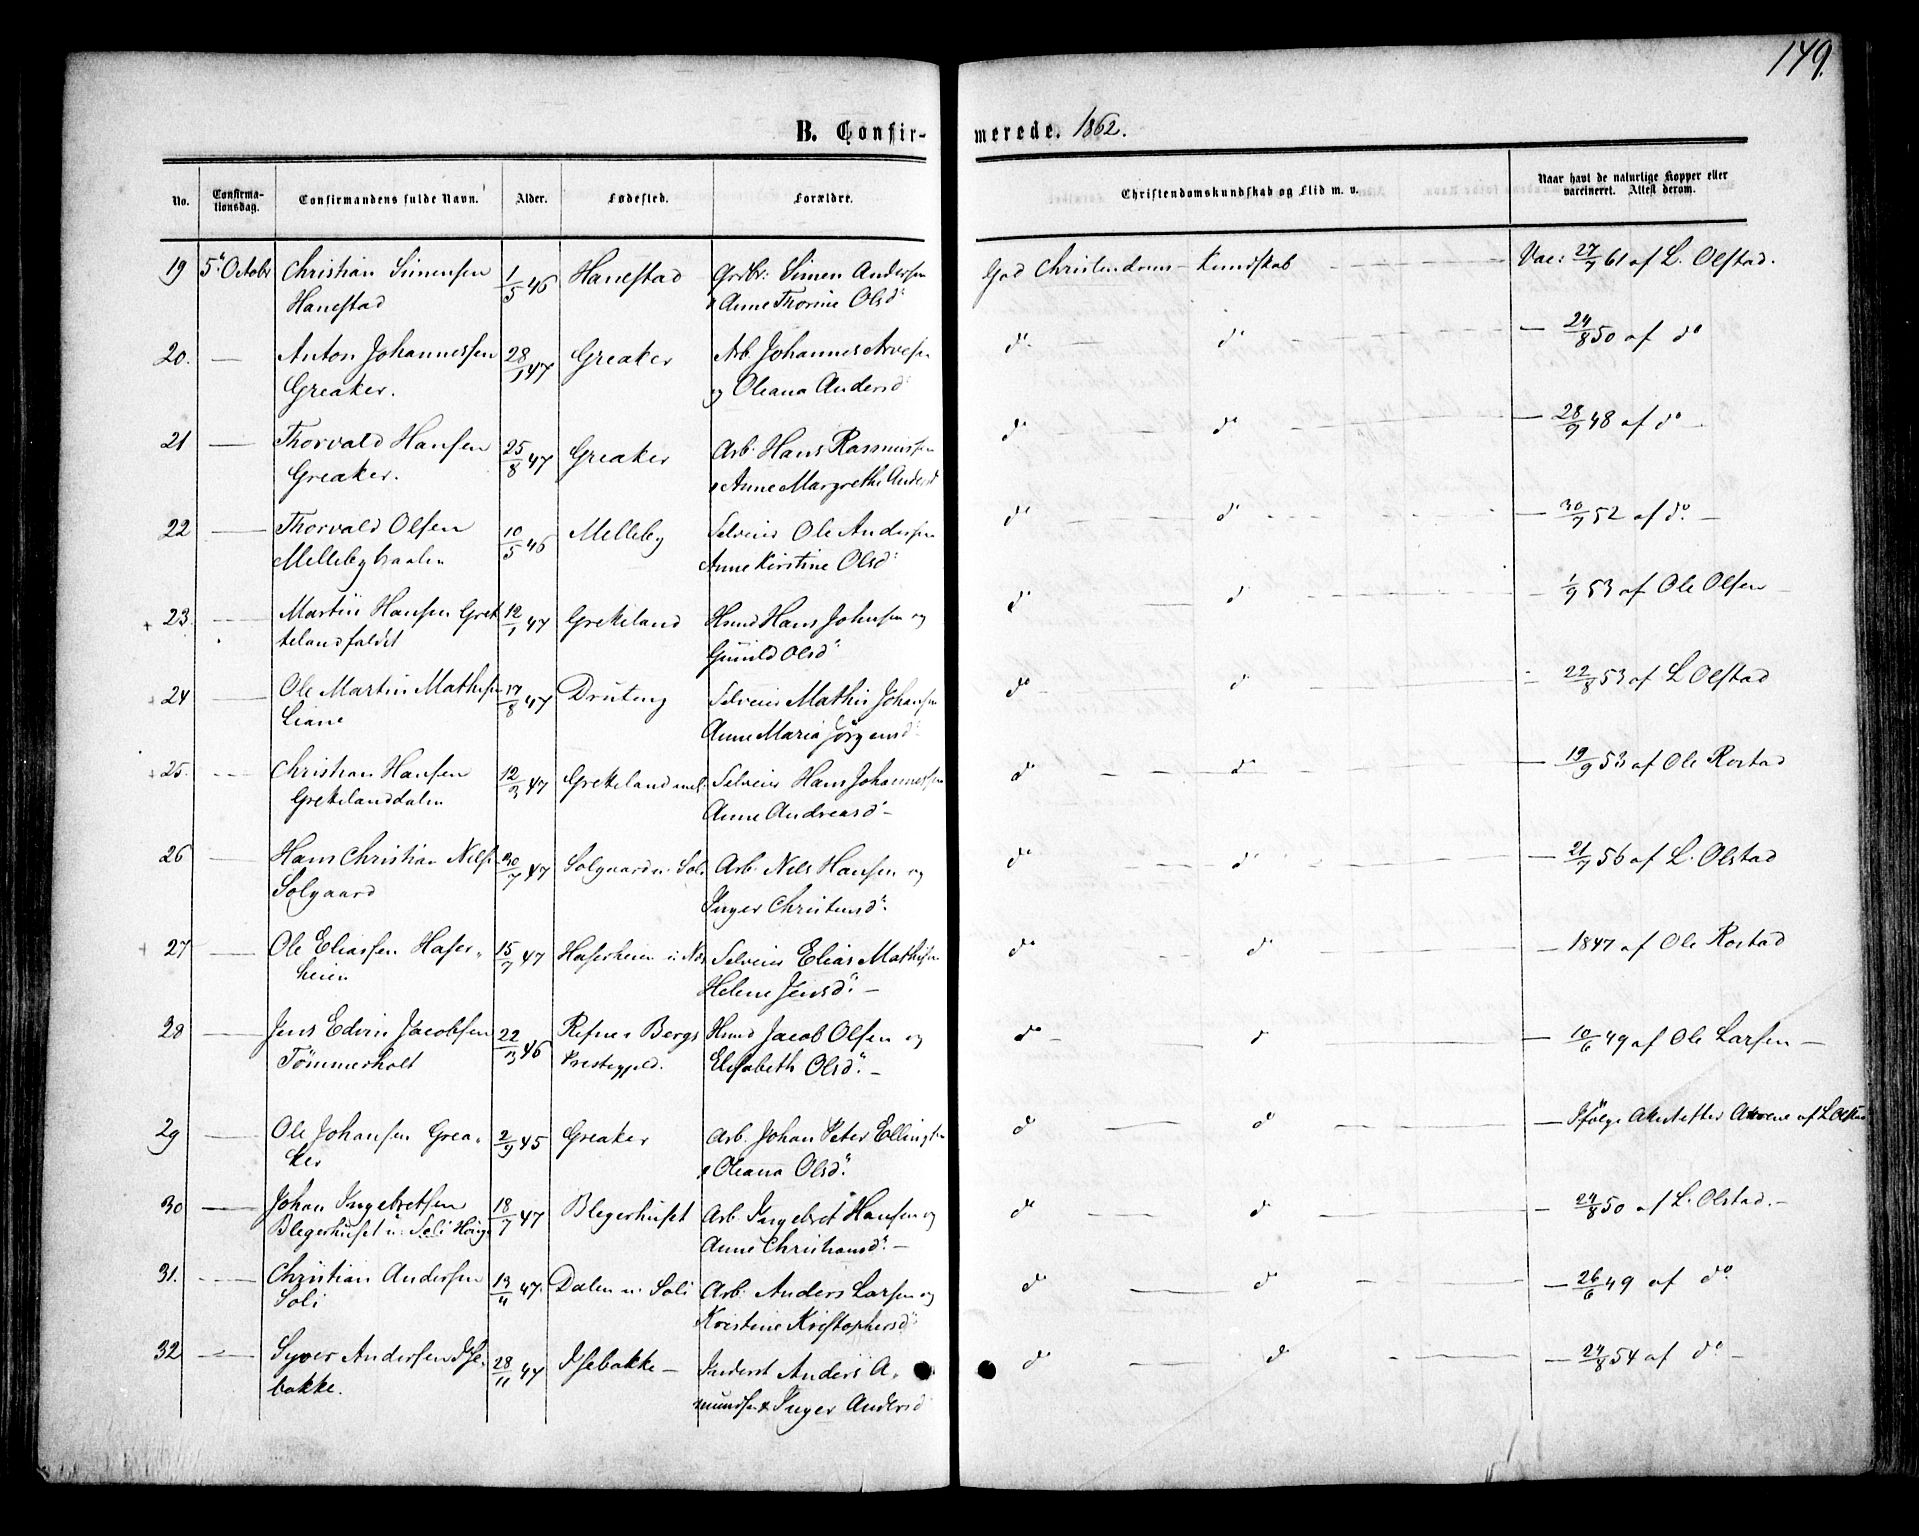 149.
B. Confirmerede. 1862.
No. Confirmationsdag. Confirmandens fulde Navn. Alder. Fødested. Forældre. Christendomskundskab og Flid m. v. Naar havt de naturlige Kopper eller vaccineret. Attest derom.
19 5' Octobr Christian Simensen 1/5 46 Hanestad Grdbr: Simen Andersen God Christendoms- Kundskab Vac: 27/7 61 af L. Olstad.
Hanestad Anne Thorine Olsd:
20. — Anton Johannessen 28/1 47 Greaker Arb. Johannes Arvesen do do — 24/8 50 af do
Greaker. og Oleana Andersd:
21 — Thorvald Hansen 25/8 47 Greaker Arb. Hans Rasmussen do do — 28/9 48 af do —
Greaker. Anne Margrethe Andersd
22 — Thorvald Olsen 10/5 46 Melleby Selveier Ole Andersen do do — 30/7 52 af do. —
Mellebybraaten Anne Kirstine Olsd:
23. — Martin Hansen Grek 12/1 47 Grekeland Hsmd Hans Johnsen og do do — 1/9 53 af Ole Olsen —
kelandfaldet Gunild Olsd:
24 — Ole Martin Mathisen 17/8 47 Druteng Selveier Mathis Johansen do do — 22/8 53 af L Olstad
Liane Anne Maria Jørgensd:
25. — Christian Hansen 12/3 47 Grekeland mel: Selveier Hans Johannessen do do — 19/9 53 af Ole Rostad
Grekelanddalen Anne Andreasd: —
26 — Hans Christian Nilsen 30/7 47 Solgaard u. Soli Arb. Nils Hansen og do do — 21/7 56 af L. Olstad
Solgaard Inger Christensd:
27 — Ole Eliassen Hafer- 15/7 47 Haferheien u. Selveier Elias Mathisen do do — 1847 af Ole Rostad
heien Helene Jensd: —
28 — Jens Edvin Jacobsen 22/3 46 Refne i Bergs Hsmd Jacob Olsen og do do — 10/6 49 af Ole Larsen —
Tömmerholt Prestegjeld. Elisabeth Olsd: —
29 — Ole Johansen Grea- 2/9 45 Greaker Arb. Johan Peter Ellingsen do do — Ifölge af L Olstad
ker Oleana Olsd:
30 — Johan Ingebretsen 18/7 47 Blegerhuset Arb. Ingebret Hansen og do do — 24/8 50 af L. Olstad. —
Blegerhuset u. Soli Anne Christiansd: —
31. — Christian Andersen 13/11 47. Dalen u. Soli Arb. Anders Larsen og do do — 26/6 49 af do.
Soli Kristine Kristophersd:
32 — Syver Andersen Ise- 28/11 47 Isebakke — Inderst Anders A- do do — 24/8 54 af do —
bakke. mundsen & Inger Andersd